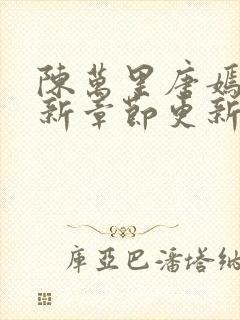 陳萬里唐嫣
新章節更新
庫亞巴潘塔納